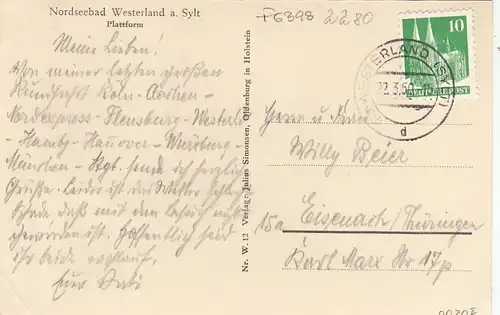 Nordseebad Westerland a. Sylt
Plattform
F6398 2280
Meine Lieben!
Von meiner letzten großen
Rundfahrt Köln - Aachen -
Nordexpress - Flensburg - Westerld
- Hambg - Hannover - Würzburg -
München - Stgt. sende ich herzliche
Grüße. Leider ist das Wetter schlecht
Schade daß mit dem Besuch nichts
geworden ist. Hoffentlich seid
ihr beide wohlauf.
Euer
Nr. W. 12 Verlag: Julius Simonsen, Oldenburg in Holstein
10
DEUTSCHE POST
WESTERLAND (SYLT)
22.3.50
d
Herrn u. Frau
Willy Beier
15a Eisenach/Thüringen
Karl Marx Str 17p